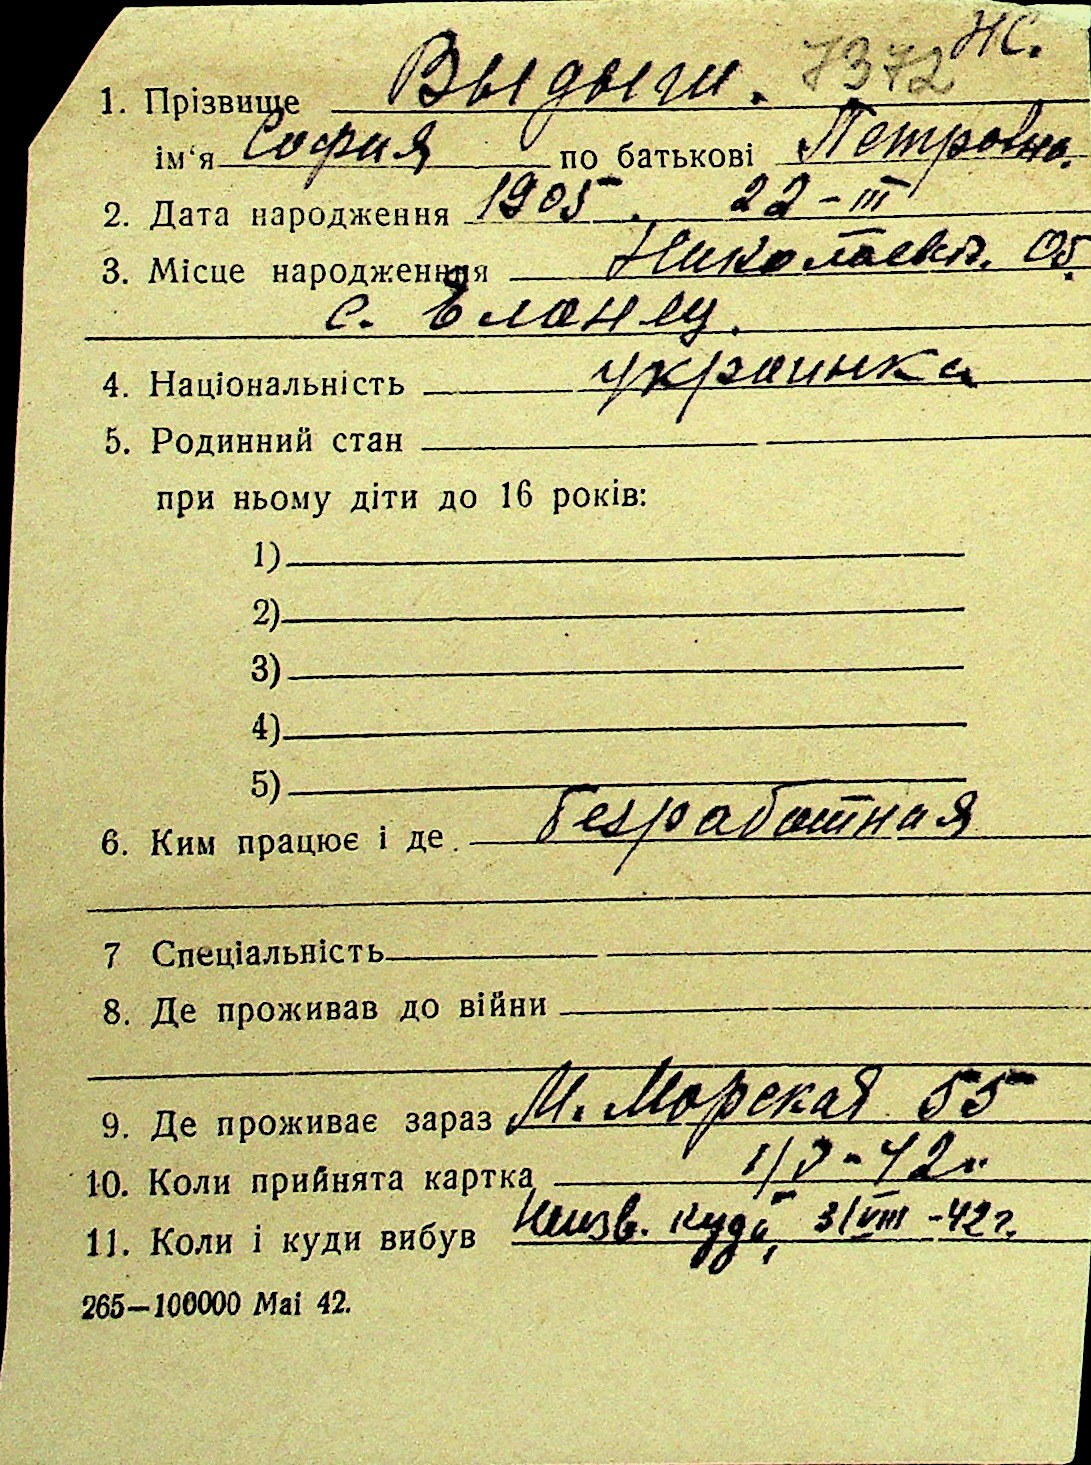 7372 Нс.
1. Прізвище Выдыги.
ім'я София по батькові Петровна.
2. Дата народження 1905. 22-III
3. Місце народження Николаевск. Об.
с. Еланец.
4. Національність украинка
5. Родинний стан
при ньому діти до 16 років:
1)
2)
3)
4)
5)
6. Ким працює і де безработная
7 Спеціальність
8. Де проживав до війни
9. Де проживає зараз М. Морская 55
10. Коли прийнята картка
11. Коли і куди вибув Неизв. куда, 31/VIII-42г.
265—100000 Mai 42.